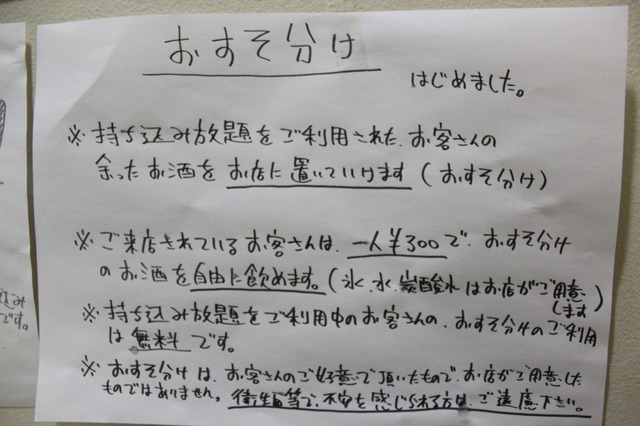 おすそ分け
はじめました。
※ 持ち込み放題をご利用された、お客さんの
余ったお酒をお店に置いていけます（おすそ分け）
※ ご来店されているお客さんは、一人¥300で、おすそ分け
のお酒を自由に飲めます。（氷、水、炭酸水はお店がご用意
します）
※ 持ち込み放題をご利用中のお客さんの、おすそ分けのご利用
は無料です。
※ おすそ分けは、お客さんのご好意で頂いたもので、お店がご用意した
ものではありません。衛生面等で、不安を感じられる方は、ご遠慮下さい。
込み
です。